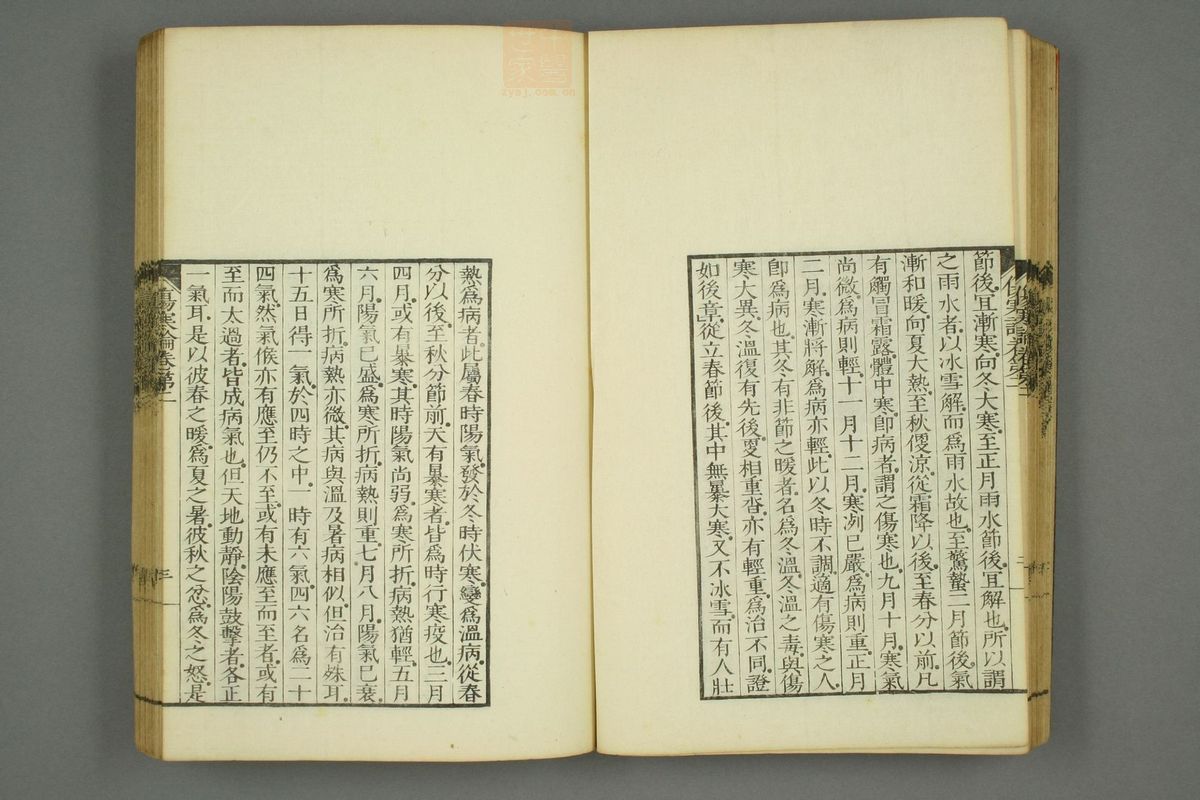 節後宜漸寒向冬大寒至正月雨水節後宜解也所以謂
之雨水者以冰雪解而爲雨水故也至驚蟄二月節後氣
漸和暖向夏大熱至秋便涼從霜降以後至春分以前凡
有觸冒霜露體中寒卽病者謂之傷寒也九月十月寒氣
尚微爲病則輕十一月十二月寒冽已嚴爲病則重正月
二月寒漸將解爲病亦輕此以冬時不調適有傷寒之人
卽爲病也其冬有非節之暖者名爲冬溫冬溫之毒與傷
寒大異冬溫復有先後更相重沓亦有輕重爲治不同證
如後章從立春節後其中無暴大寒又不冰雪而有人壯
熱爲病者此屬春時陽氣發於冬時伏寒變爲溫病從春
分以後至秋分節前天有暴寒者皆爲時行寒疫也三月
四月或有暴寒其時陽氣尚弱爲寒所折病熱猶輕五月
六月陽氣已盛爲寒所折病熱則重七月八月陽氣已衰
爲寒所折病熱亦微其病與溫及暑病相似但治有殊耳
十五日得一氣於四時之中一時有六氣四六名爲二十
四氣然氣候亦有應至仍不至或有未應至而至者或有
至而太過者皆成病氣也但天地動靜陰陽鼓擊者各正
一氣耳是以彼春之暖爲夏之暑彼秋之忿爲冬之怒是
傷寒論卷第二
三
zysj.com.cn